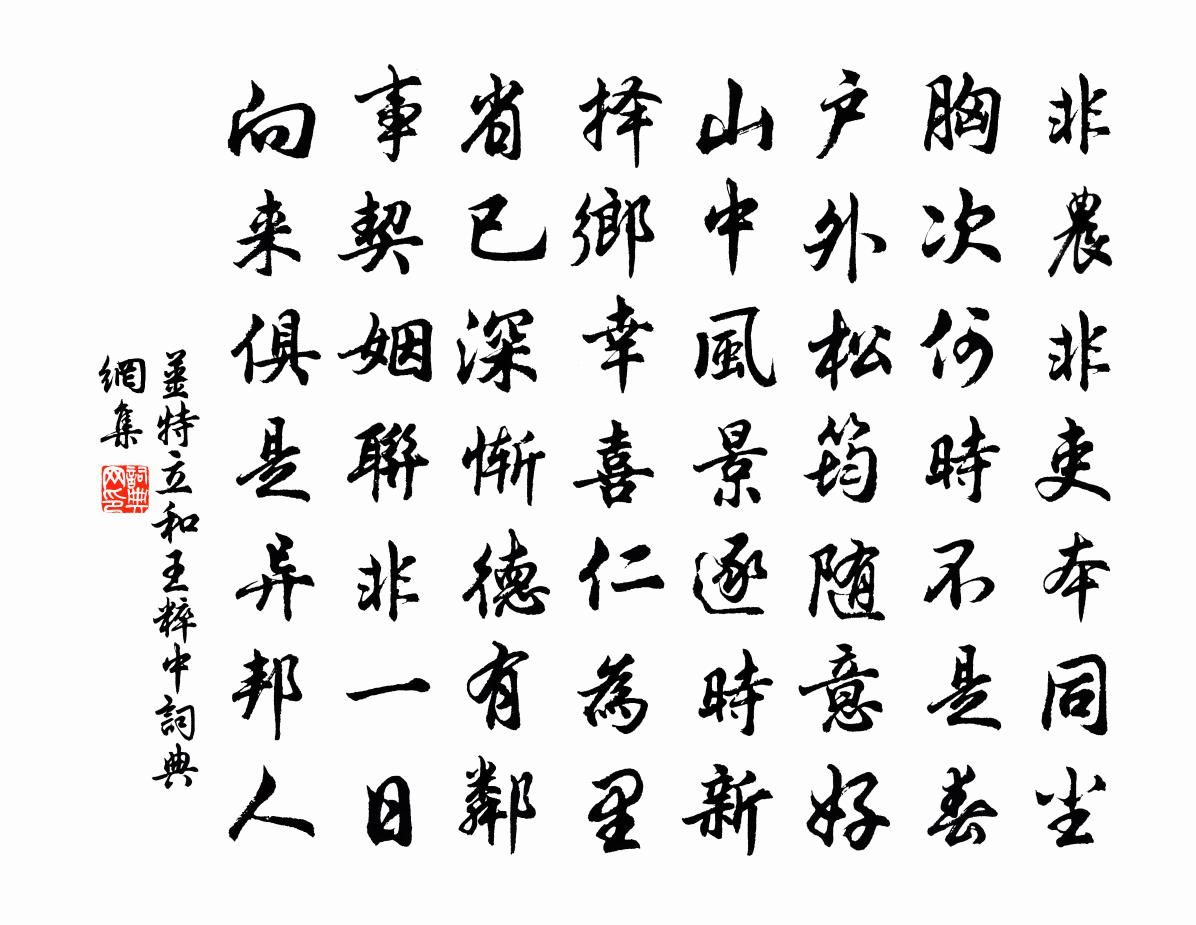 非農非吏本同尘
胸次何時不是春
户外松筠随意好
山中風景逐時新
择鄉幸喜仁為里
省已深惭德有鄰
事契姻聯非一日
向来俱是异邦人
姜特立和王粹中詞典
網集
詞典
网印